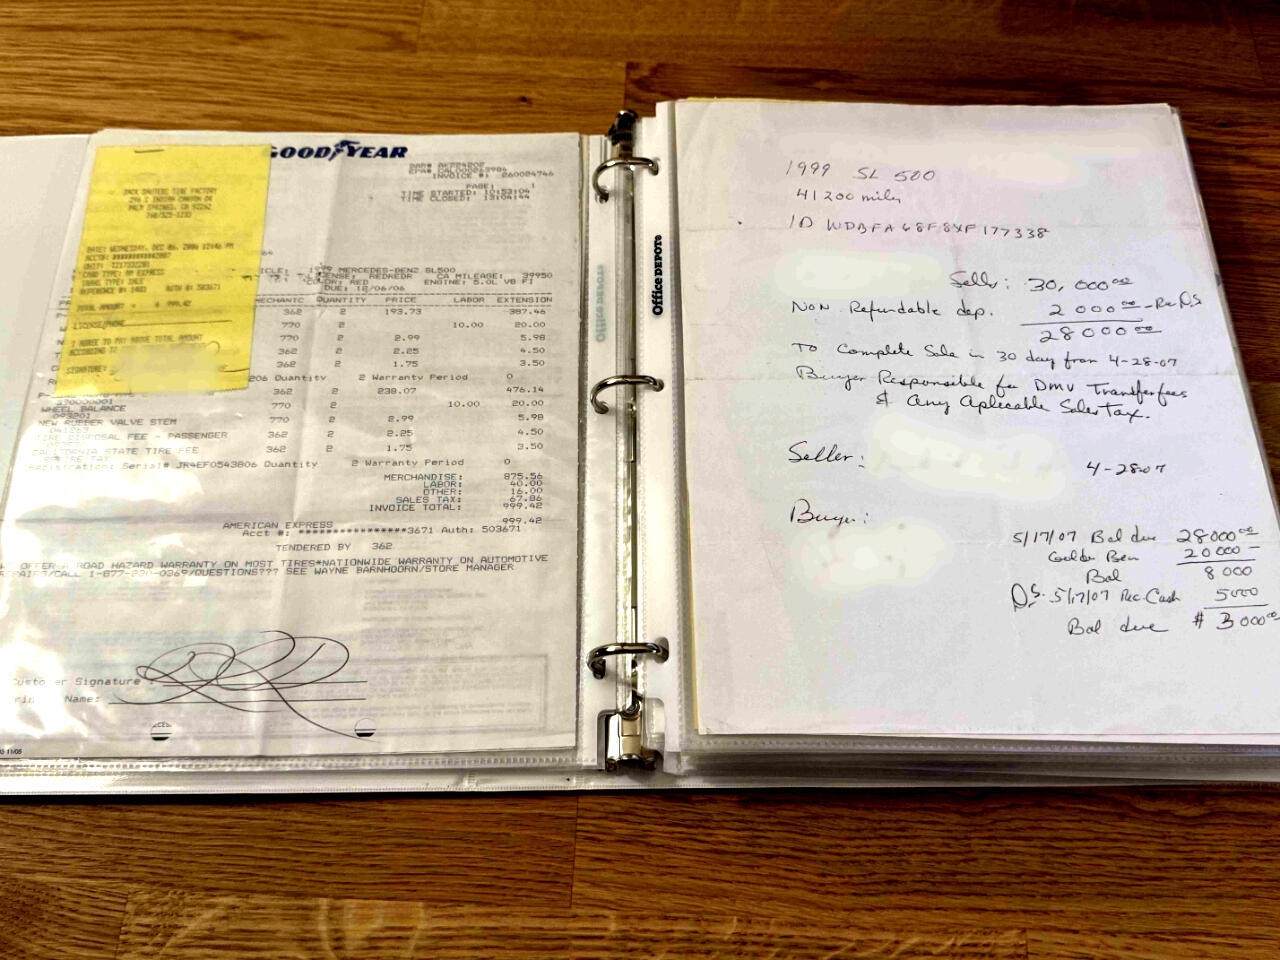 GOODYEAR
INVOICE #: 260024746
PAGE: 1
TIME STARTED: 10:53:04
TIME CLOSED: 13:04:44
JACK SAUTERS TIRE FACTORY
PALM SPRINGS, CA 92262
DATE: WEDNESDAY, DEC 06, 2006 12:46 PM
CARD TYPE: AM EXPRESS
TRANS TYPE: SALE
AUTH #: 503671
TOTAL AMOUNT = $ 999.42
LICENSE/PHONE
I AGREE TO PAY ABOVE TOTAL AMOUNT
ACCORDING
SIGNATURE:
MERCEDES-BENZ SL500
REDKEDR CA MILEAGE: 39950
RED ENGINE: 5.0L V8 FI
DUE: 12/06/06
MECHANIC QUANTITY PRICE LABOR EXTENSION
362 2 193.73 387.46
770 2 10.00 20.00
770 2 2.99 5.98
362 2 2.25 4.50
362 2 1.75 3.50
206 Quantity 2 Warranty Period 0
362 2 238.07 476.14
WHEEL BALANCE 770 2 10.00 20.00
093201
NEW RUBBER VALVE STEM 770 2 2.99 5.98
041263
TIRE DISPOSAL FEE - PASSENGER 362 2 2.25 4.50
CALIFORNIA STATE TIRE FEE 362 2 1.75 3.50
Registration: Serial# JR4EF0543806 Quantity 2 Warranty Period 0
MERCHANDISE: 875.56
LABOR: 40.00
OTHER: 16.00
SALES TAX: 67.86
INVOICE TOTAL: 999.42
AMERICAN EXPRESS 999.42
Acct #: ****************3671 Auth: 503671
TENDERED BY 362
OFFER A ROAD HAZARD WARRANTY ON MOST TIRES*NATIONWIDE WARRANTY ON AUTOMOTIVE
REPAIRS/CALL 1-877-230-0369/QUESTIONS??? SEE WAYNE BARNHOORN/STORE MANAGER
Customer Signature :
Name:
11/05
Office DEPOT
Office DEPOT
1999 SL 500
41200 miles
ID WDBFA68F8XF177338
Sells: 30,000.00
Non Refundable dep. 2 000.00 - Rec DS
28 000.00
To Complete Sale in 30 day from 4-28-07
Buyer Responsible for DMV Transfer fees
& Any Aplicable Sales Tax.
Seller: 4-28-07
Buyer:
5/17/07 Bal due 28000.00
Golden Ben 20000 -
Bal 8 000
DS. 5/17/07 Rec. Cash 5000
Bal due $ 3000.00